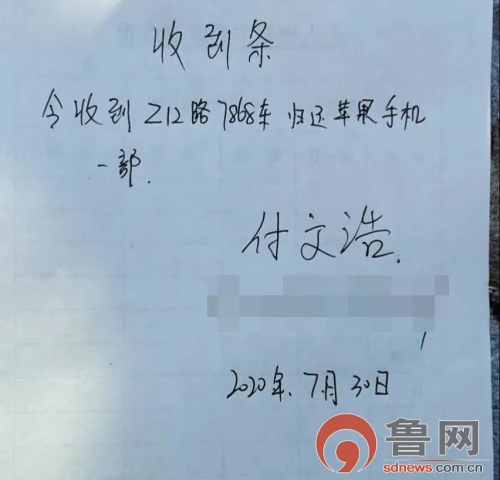 收到条
今收到 Z12路7868车 归还苹果手机
一部.
付文浩.
2020年.7月30日
鲁网
sdnews.com.cn